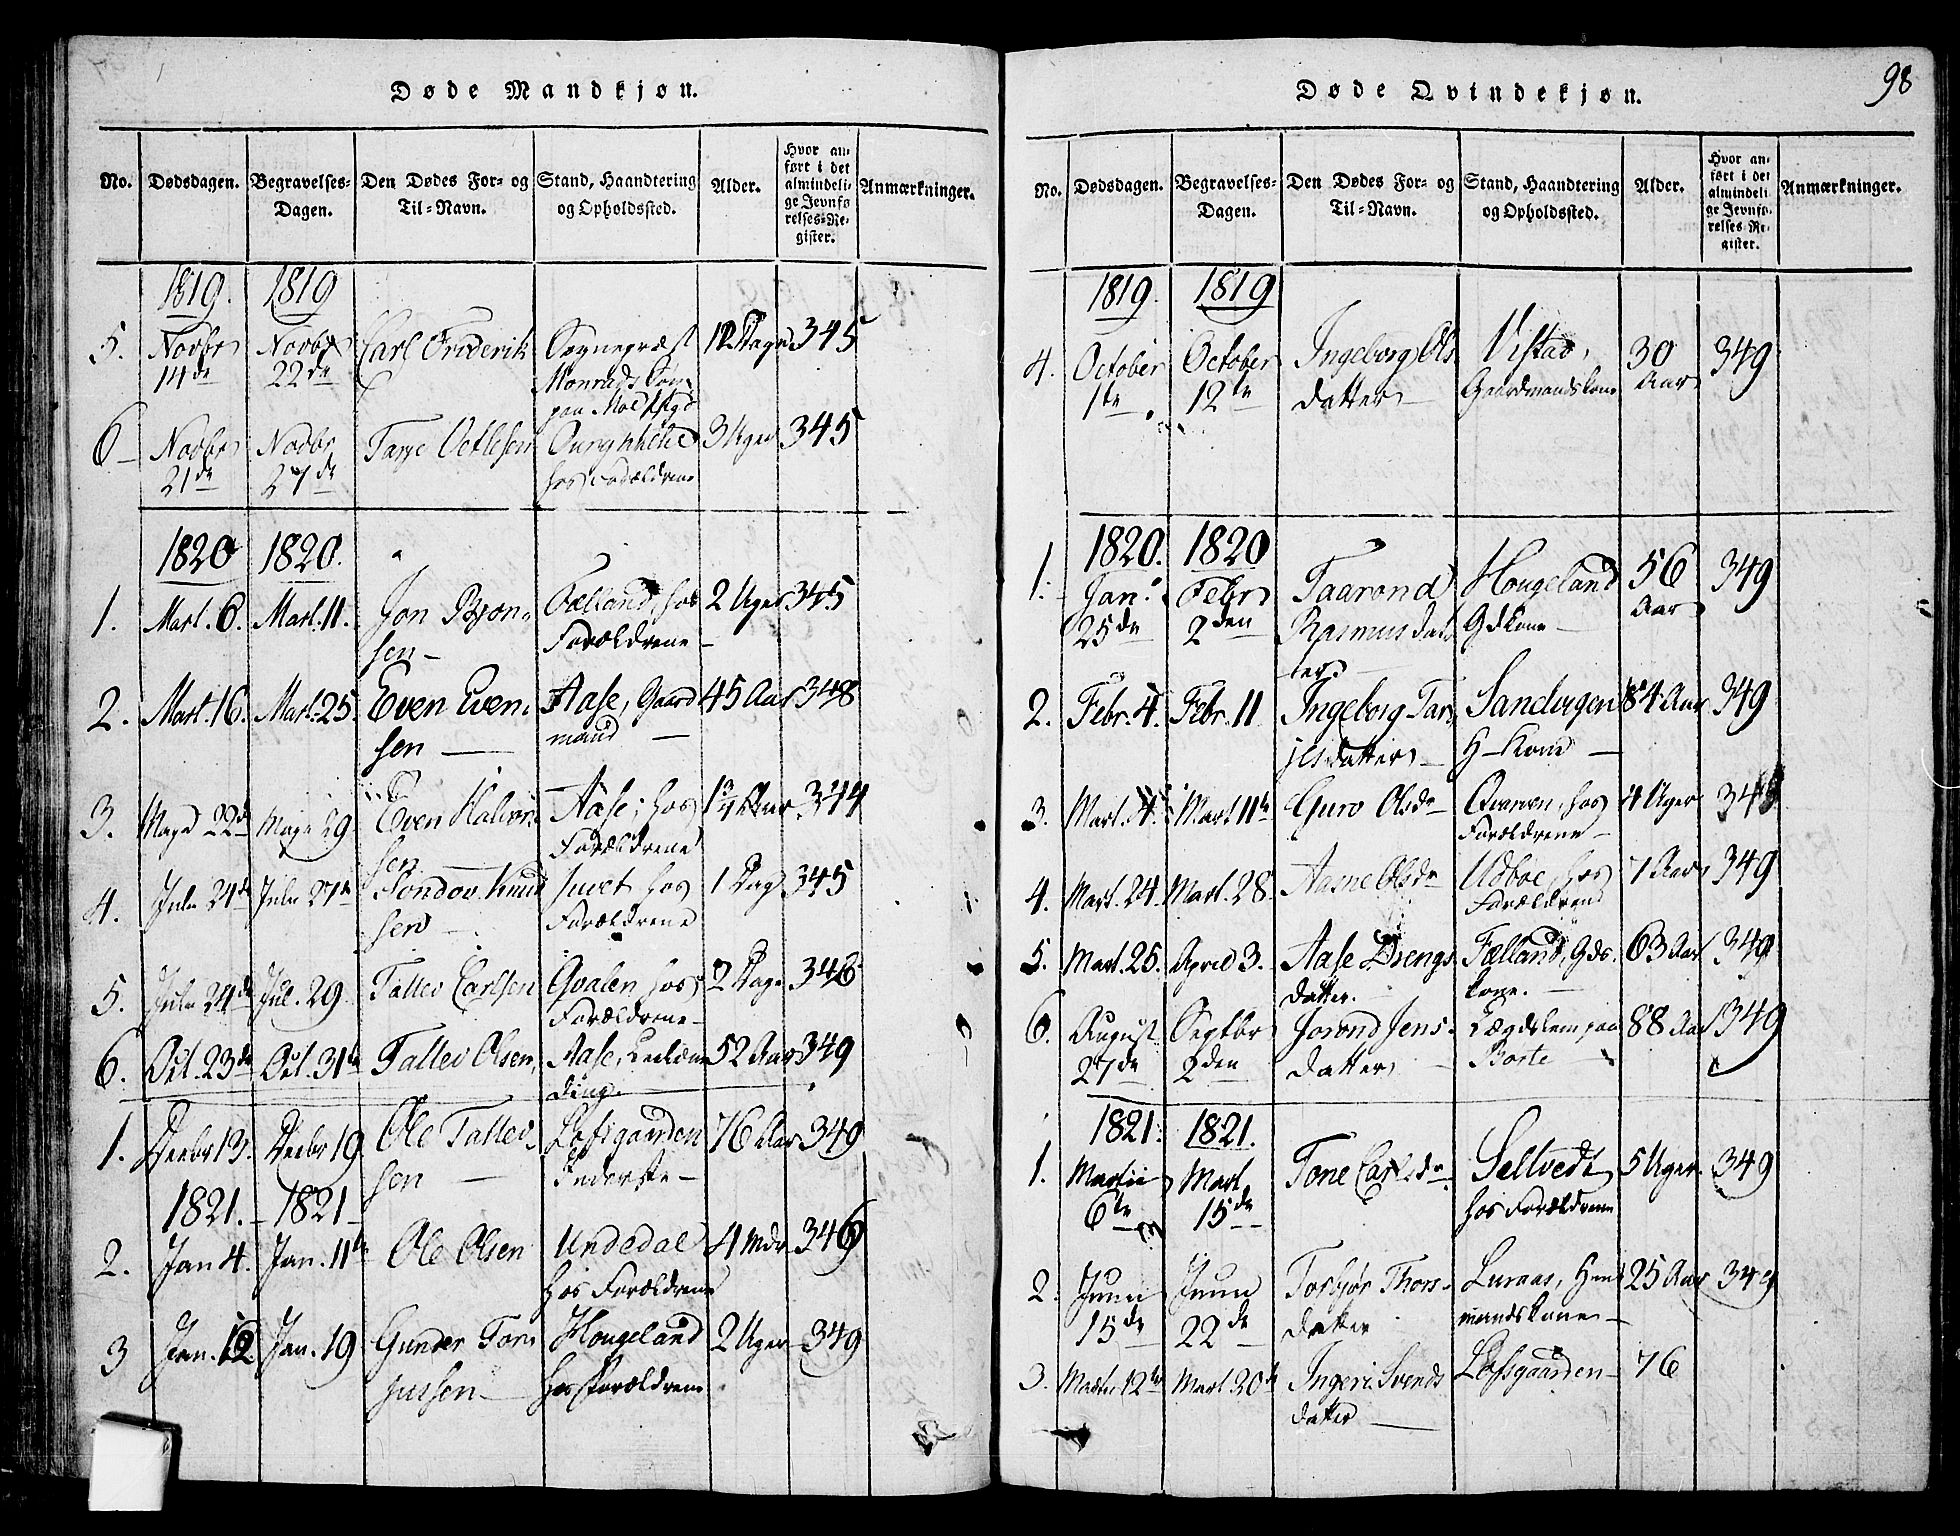 98
Døde Mandkjøn.
No. Dødsdagen. Begravelses-Dagen. Den Dødes For- og Til-Navn. Stand, Haandtering og Opholdssted. Alder. Hvor anført i det almindelige Jevnførelses-Register. Anmærkninger.
1819. 1819
5. Novbr 14de Novbr 22de Carl Friderik Sognepræst Monrads Søn paa 12 Dage 345
6 Novbr 21de Novbr 27de Tarje Vetlesen hos Forældrene 3 Uger 345
1820 1820.
1. Mart. 6. Mart. 11. Jon Bjønsen Fælland, hos Forældrene 2 Uger 345
2. Mart. 16. Mart. 25. Even Evensen Aase, Gaardmand 45 Aar 348
3. Maji 22de Maji 29 Even Halvorsen Aase, hos Forældrene 344
4. Julii 24de Julii 27de Tondov Knudsen Juvet hos Forældrene 1 Dag 345
5. Julii 24de Jul. 29 Tallev Carlsen Qvalen hos Forældrene 2 Dage 346
6. Oct. 23de Oct. 31te Tallev Olsen, Aase, 52 Aar 349
1. Decbr 13. Decbr 19 Ole Tallevsen Lofsgaarden Inderste 76 Aar 349
1821. 1821
2. Jan 4. Jan. 11te Ole Olsen Undedal hos Forældrene 4 Mdr 346
3 Jan. 12. Jan. 19 Gunder Torjussen Hougeland hos Forældrene 2 Uger 349
Døde Qvindekjøn.
No. Dødsdagen. Begravelses-Dagen. Den Dødes For- og Til-Navn. Stand, Haandtering og Opholdssted. Alder. Hvor anført i det almindelige Jevnførelses-Register. Anmærkninger.
1819. 1819
4. October 1te October 12te Ingeborg Olsdatter Vistad, Gaardmandskone 30 Aar 349
1820. 1820
1. Jan. 25de Febr 2den Taarond Rasmusdatter Hougeland Gdkone 56 Aar 349
2. Febr. 4. Febr. 11 Ingeborg Tarjesdatter Sandvigen H-Kone 84 Aar 349
3. Mart. 4. Mart. 11te Guro Olsdr Qvaven, hos Forældrene 4 Uger
4. Mart. 24. Mart. 28. Aasne Olsdr Udboe, hos Forældrene 7 Aar 349
5. Mart. 25. April 3. Aase Drengsdatter. Fælland, Gds. kone. 63 Aar 349
6. August 27de Septbr 2den Jorond Jensdatter Lægdslem paa Borte 88 Aar 349
1821. 1821.
1. Martii 6te Mart. 15de Tone Carlsdr Seltvedt hos Forældrene 5 Uger. 349
2. Junii 15de Junii 22de Torbjør Thorsdatter Luraas, Huusmandskone 25 Aar 349
3. Martii 12te Mart 20de Ingeri Svendsdatter Lofsgaarden 76